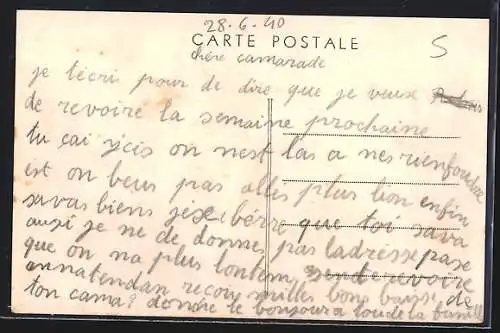 28-6-40
CARTE POSTALE
5
chère camarade
je técri pour de dire que je veux
de revoire la semaine prochaine
tu çai içis on nest las a nes rien foutre
est on beus pas allés plus lion enfin
savas biens jéxcbérre que toi sava
ausi je ne de donnes pas ladrisse pase
que on na plus lontem de revoire
annatendan recoi milles bons baiser de
ton cama? donne le bonjour a toude la famille